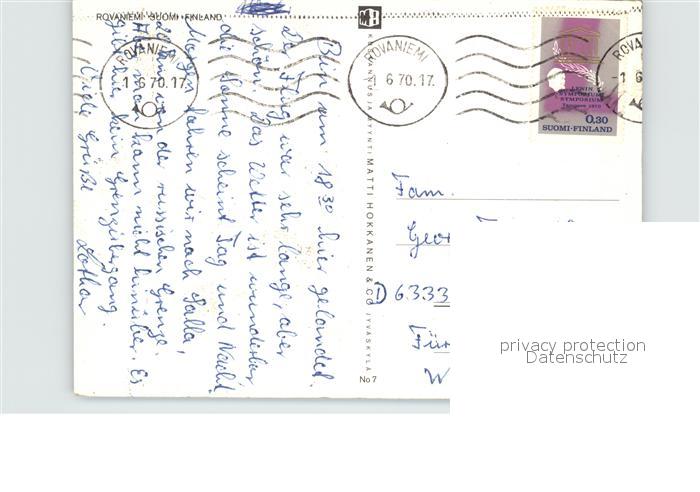 ROVANIEMI SUOMI FINLAND
MH
ROVANIEMI
-1.6 70.17.
ROVANIEMI
6 70.17.
ROVAN
-1 6
LENIN
SYMPOSIUMI
SYMPOSIUM
Tampere 1970
0,30
SUOMI-FINLAND
Bin um 18 30 hier gelandet.
Der Flug war sehr lange, aber
schön. Das Wetter ist wunderbar
die Sonne scheint Tag und Nacht.
Morgen fahren wir nach Salla,
an der russischen Grenze.
man kann nicht hinüber. Es
gibt kein Grenzübergang.
Viele Grüße Lothar
MATTI HOKKANEN & CO JYVÄSKYLÄ
No 7
Fam.
Geor
D 6333
W
privacy protection
Datenschutz